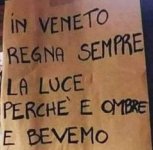 iN VENETO
REGNA SEMPRE
LA LUCE
PERCHÈ E OMBRE
E BEVEMO